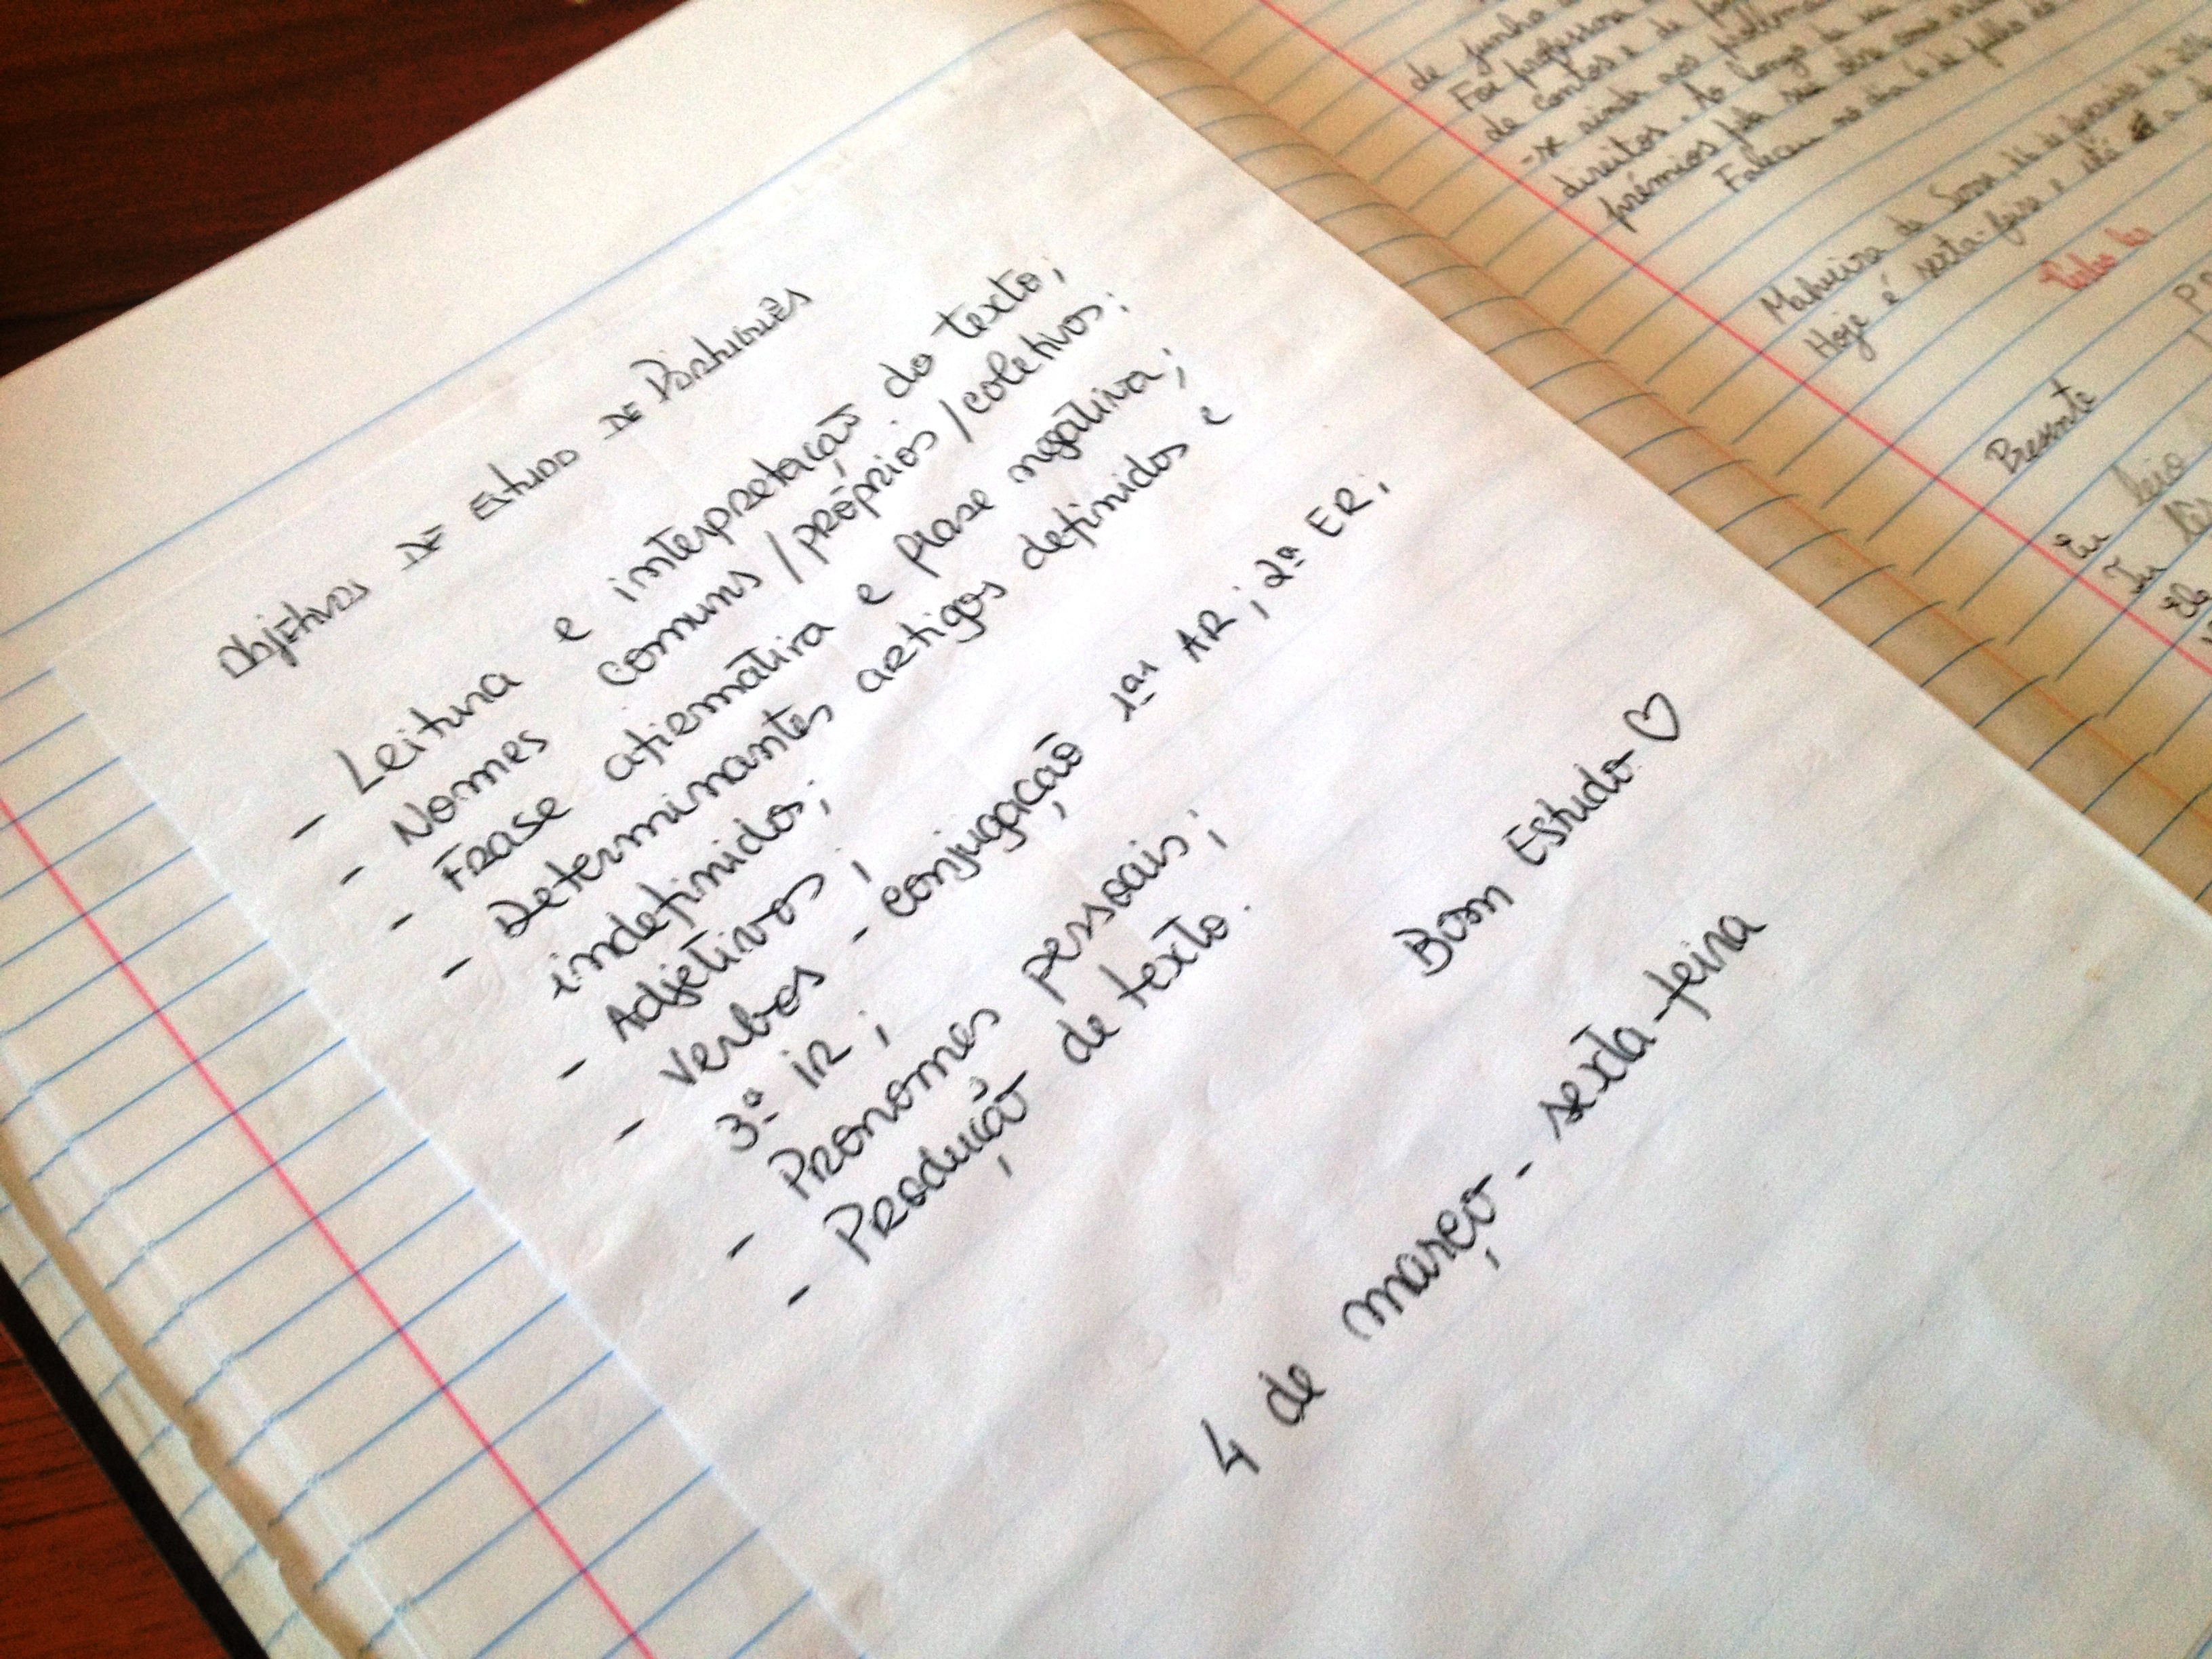 Objetivos de Estudo de Português
- Leitura e interpretação do texto;
- Nomes comuns / próprios / coletivos;
- Frase afiermativa e frase negativa;
- Determinantes artigos definidos e
indefinidos;
- Adjetivos;
- Verbos - conjugação 1ªs AR; 2ª ER;
3ª IR;
- Pronomes pessoais;
- Produção de texto.
Bom Estudo ♡
4 de março - sexta-feira
de junho
Foi professora
de contos e de
-se ainda aos problemas
direitos. Ao longo da sua
prémios pela sua obra como
Faleceu no dia de julho de
Malveira da Serra, de fevereiro de
Hoje é sexta-feira e está a
Presente
Eu leio
Tu lês
Ele